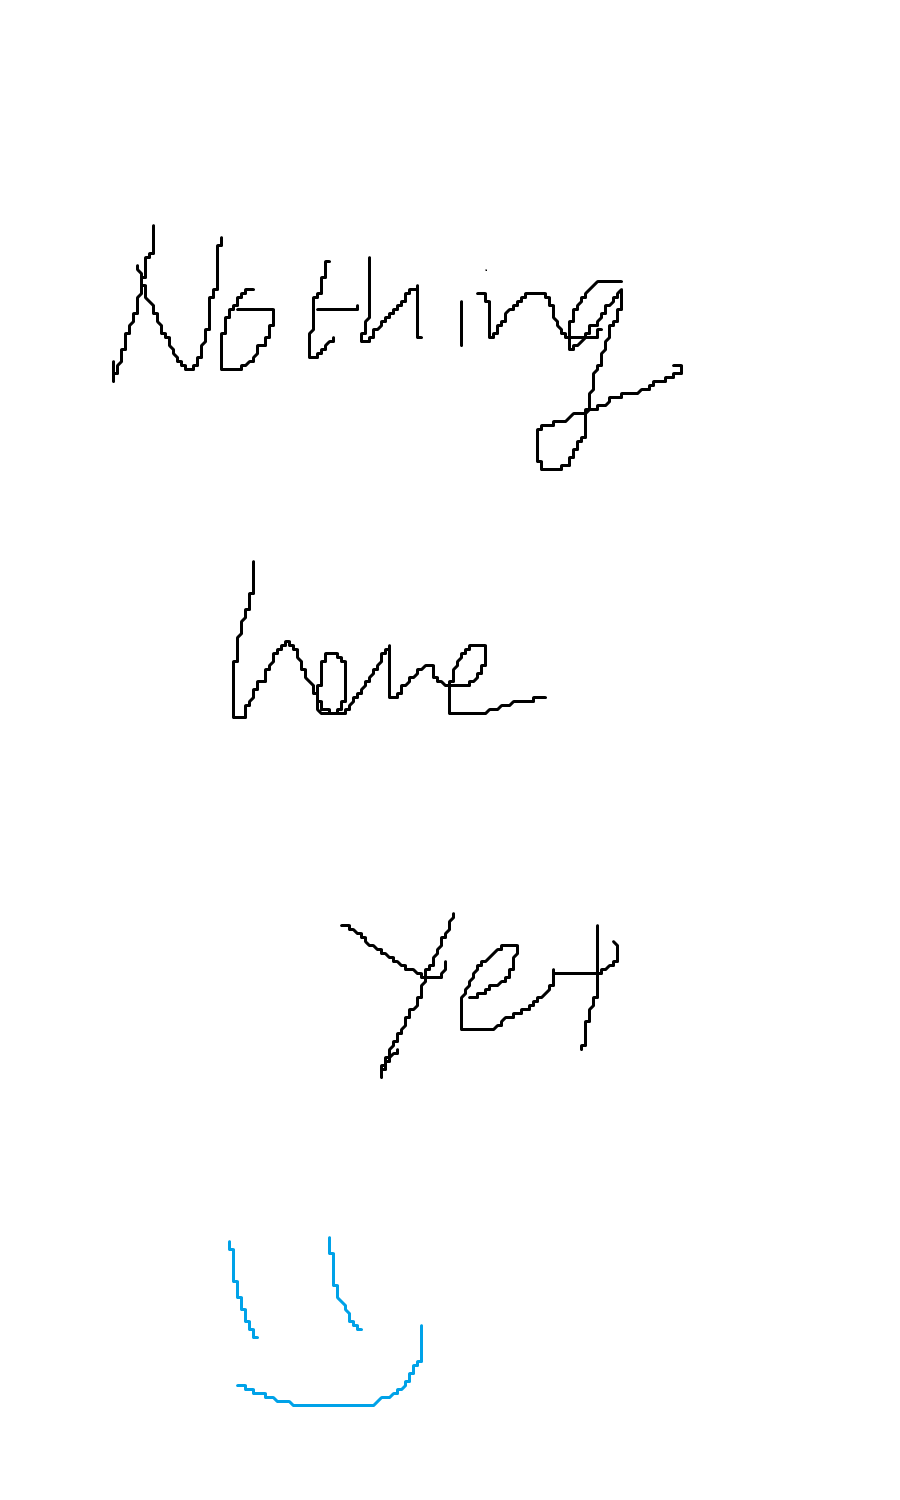 Nothing
here
Yet